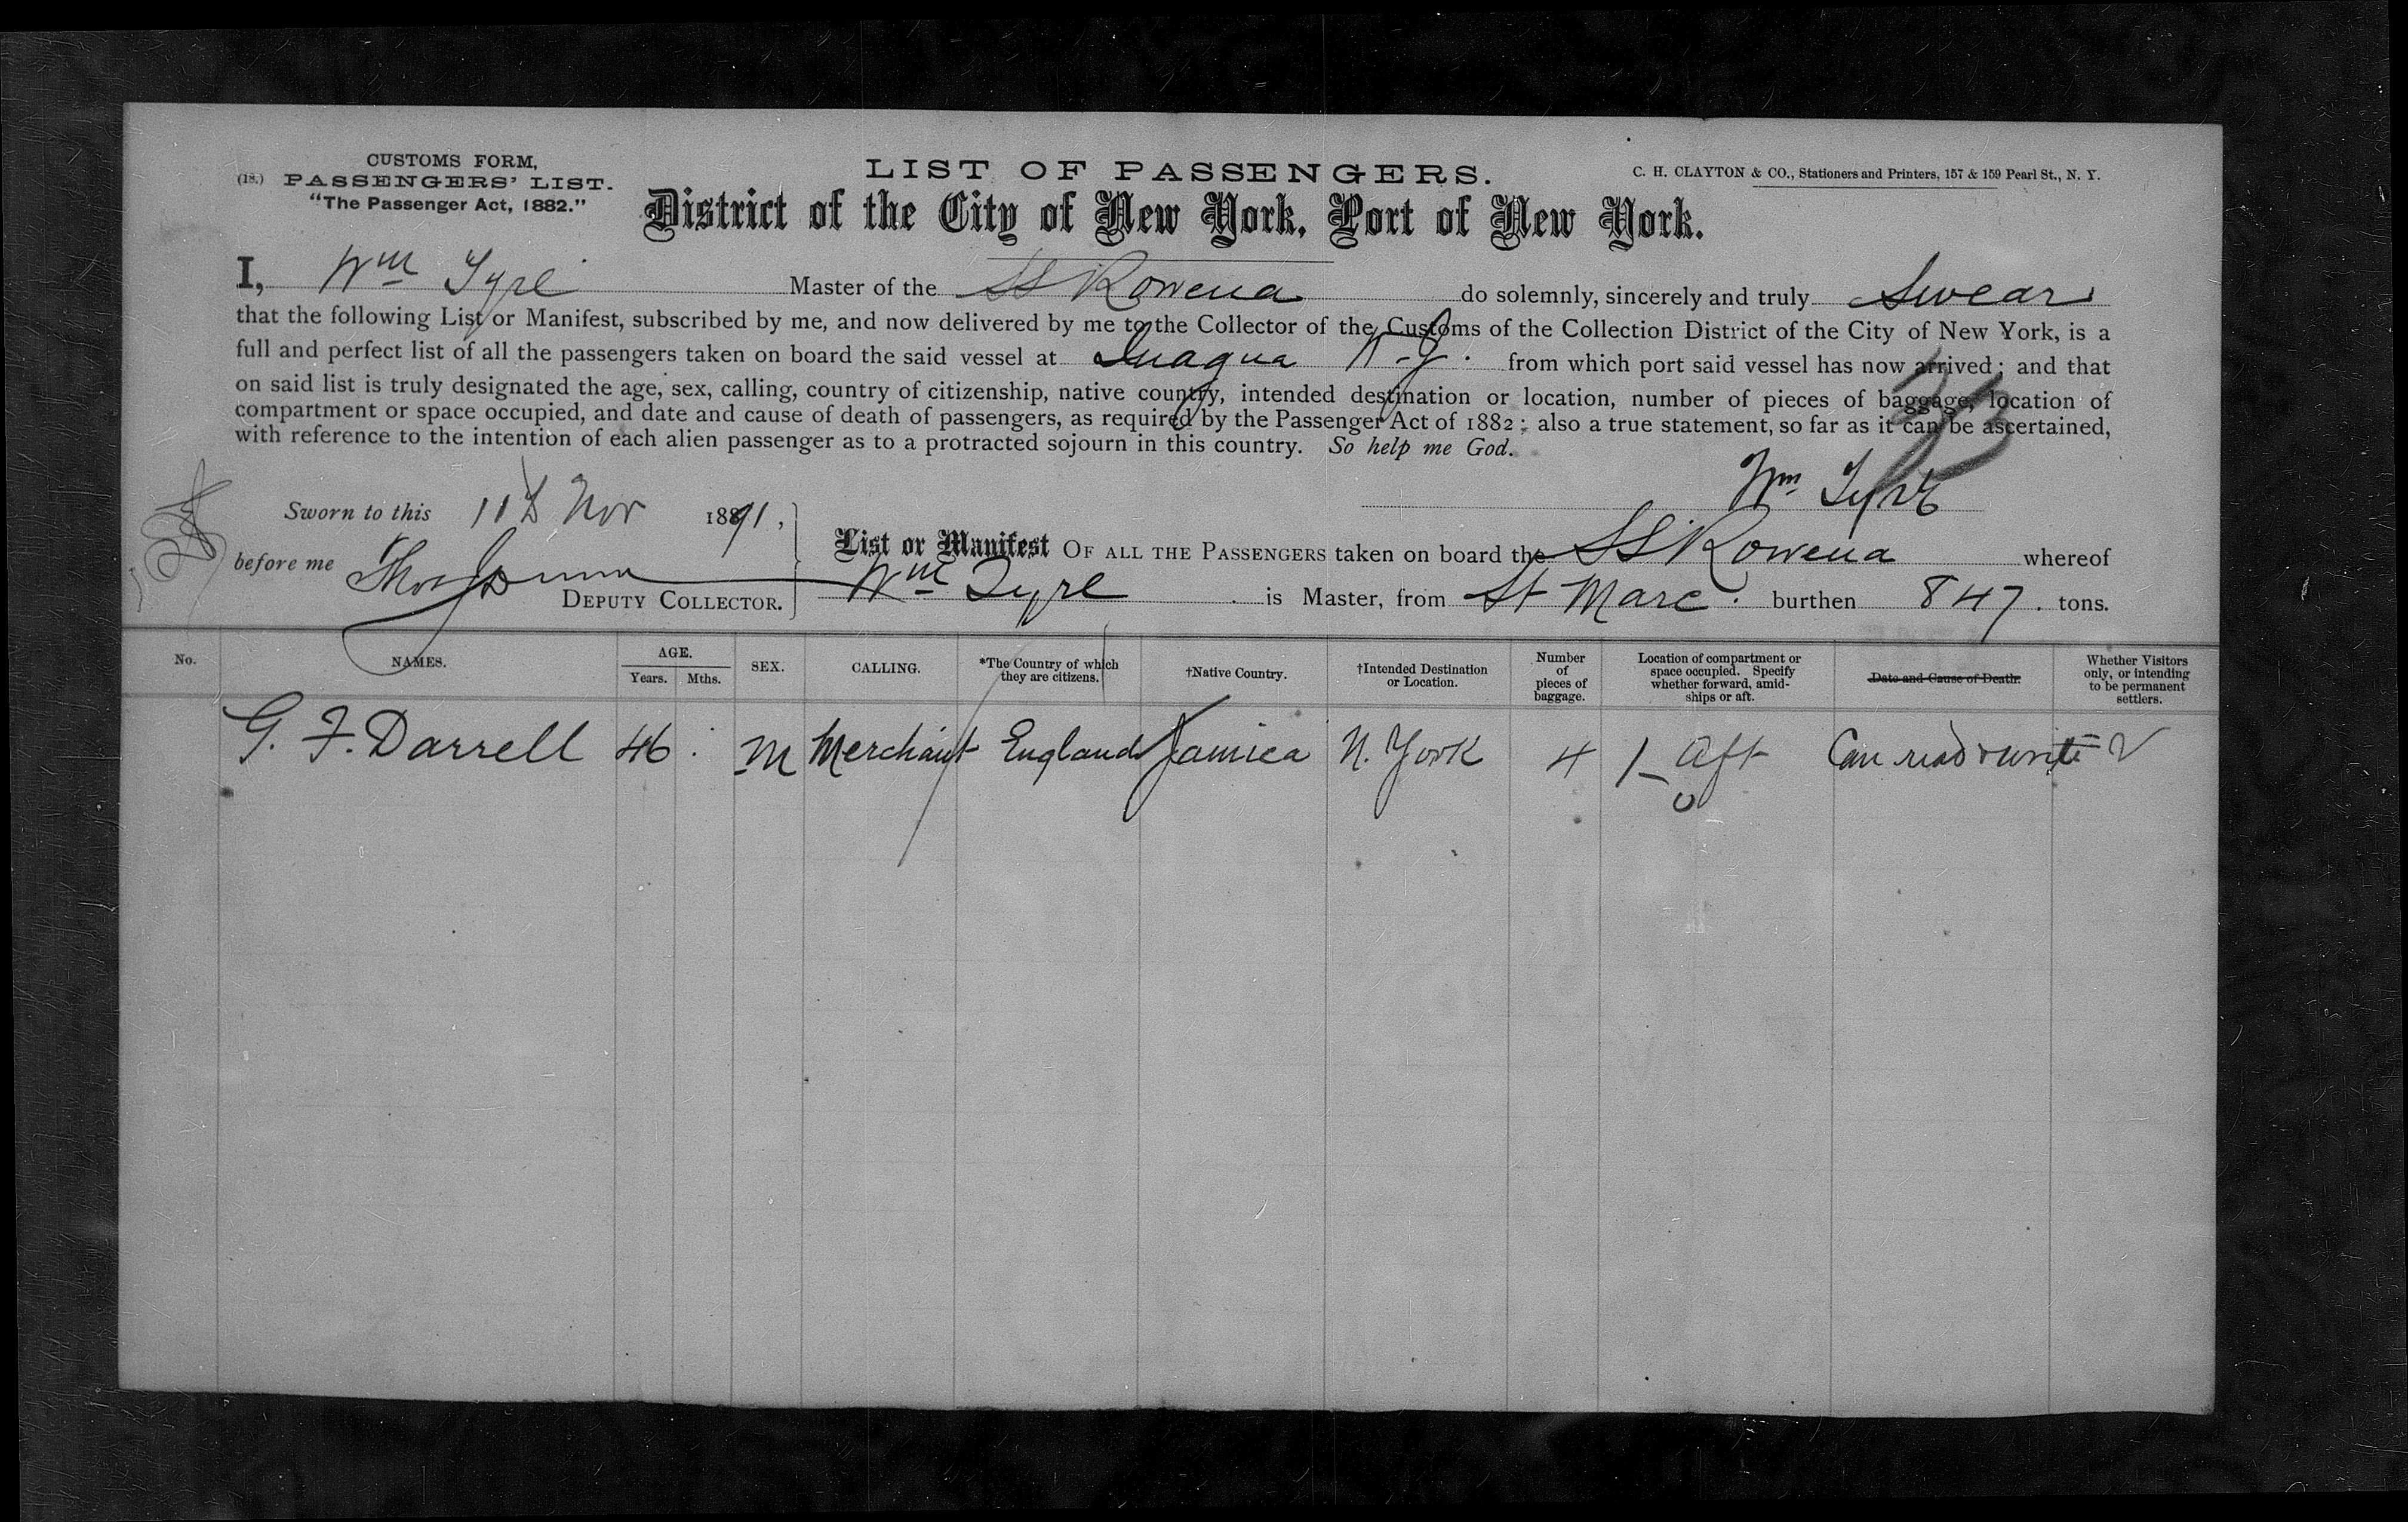 CUSTOMS FORM,
(18.) PASSENGERS' LIST.
"The Passenger Act, 1882."
LIST OF PASSENGERS.
C. H. CLAYTON & CO., Stationers and Printers, 157 & 159 Pearl St., N. Y.
District of the City of New York, Port of New York.
I, Wm Tyre Master of the SS Rowena do solemnly, sincerely and truly Swear
that the following List or Manifest, subscribed by me, and now delivered by me to the Collector of the Customs of the Collection District of the City of New York, is a
full and perfect list of all the passengers taken on board the said vessel at Inagua from which port said vessel has now arrived; and that
on said list is truly designated the age, sex, calling, country of citizenship, native country, intended destination or location, number of pieces of baggage, location of
compartment or space occupied, and date and cause of death of passengers, as required by the Passenger Act of 1882; also a true statement, so far as it can be ascertained,
with reference to the intention of each alien passenger as to a protracted sojourn in this country. So help me God.
Wm Tyre
Sworn to this 11th Nov 1891,
before me
DEPUTY COLLECTOR.
List or Manifest OF ALL THE PASSENGERS taken on board the SS Rowena whereof
Wm Tyre is Master, from St Marc. burthen 847. tons.
No. NAMES. AGE. Years. Mths. SEX. CALLING. *The Country of which they are citizens. †Native Country. †Intended Destination or Location. Number of pieces of baggage. Location of compartment or space occupied. Specify whether forward, amidships or aft. Date and Cause of Death. Whether Visitors only, or intending to be permanent settlers.
G. F. Darrell 46 M Merchant England Jamica N. York 4 1 Aft Can read & write V